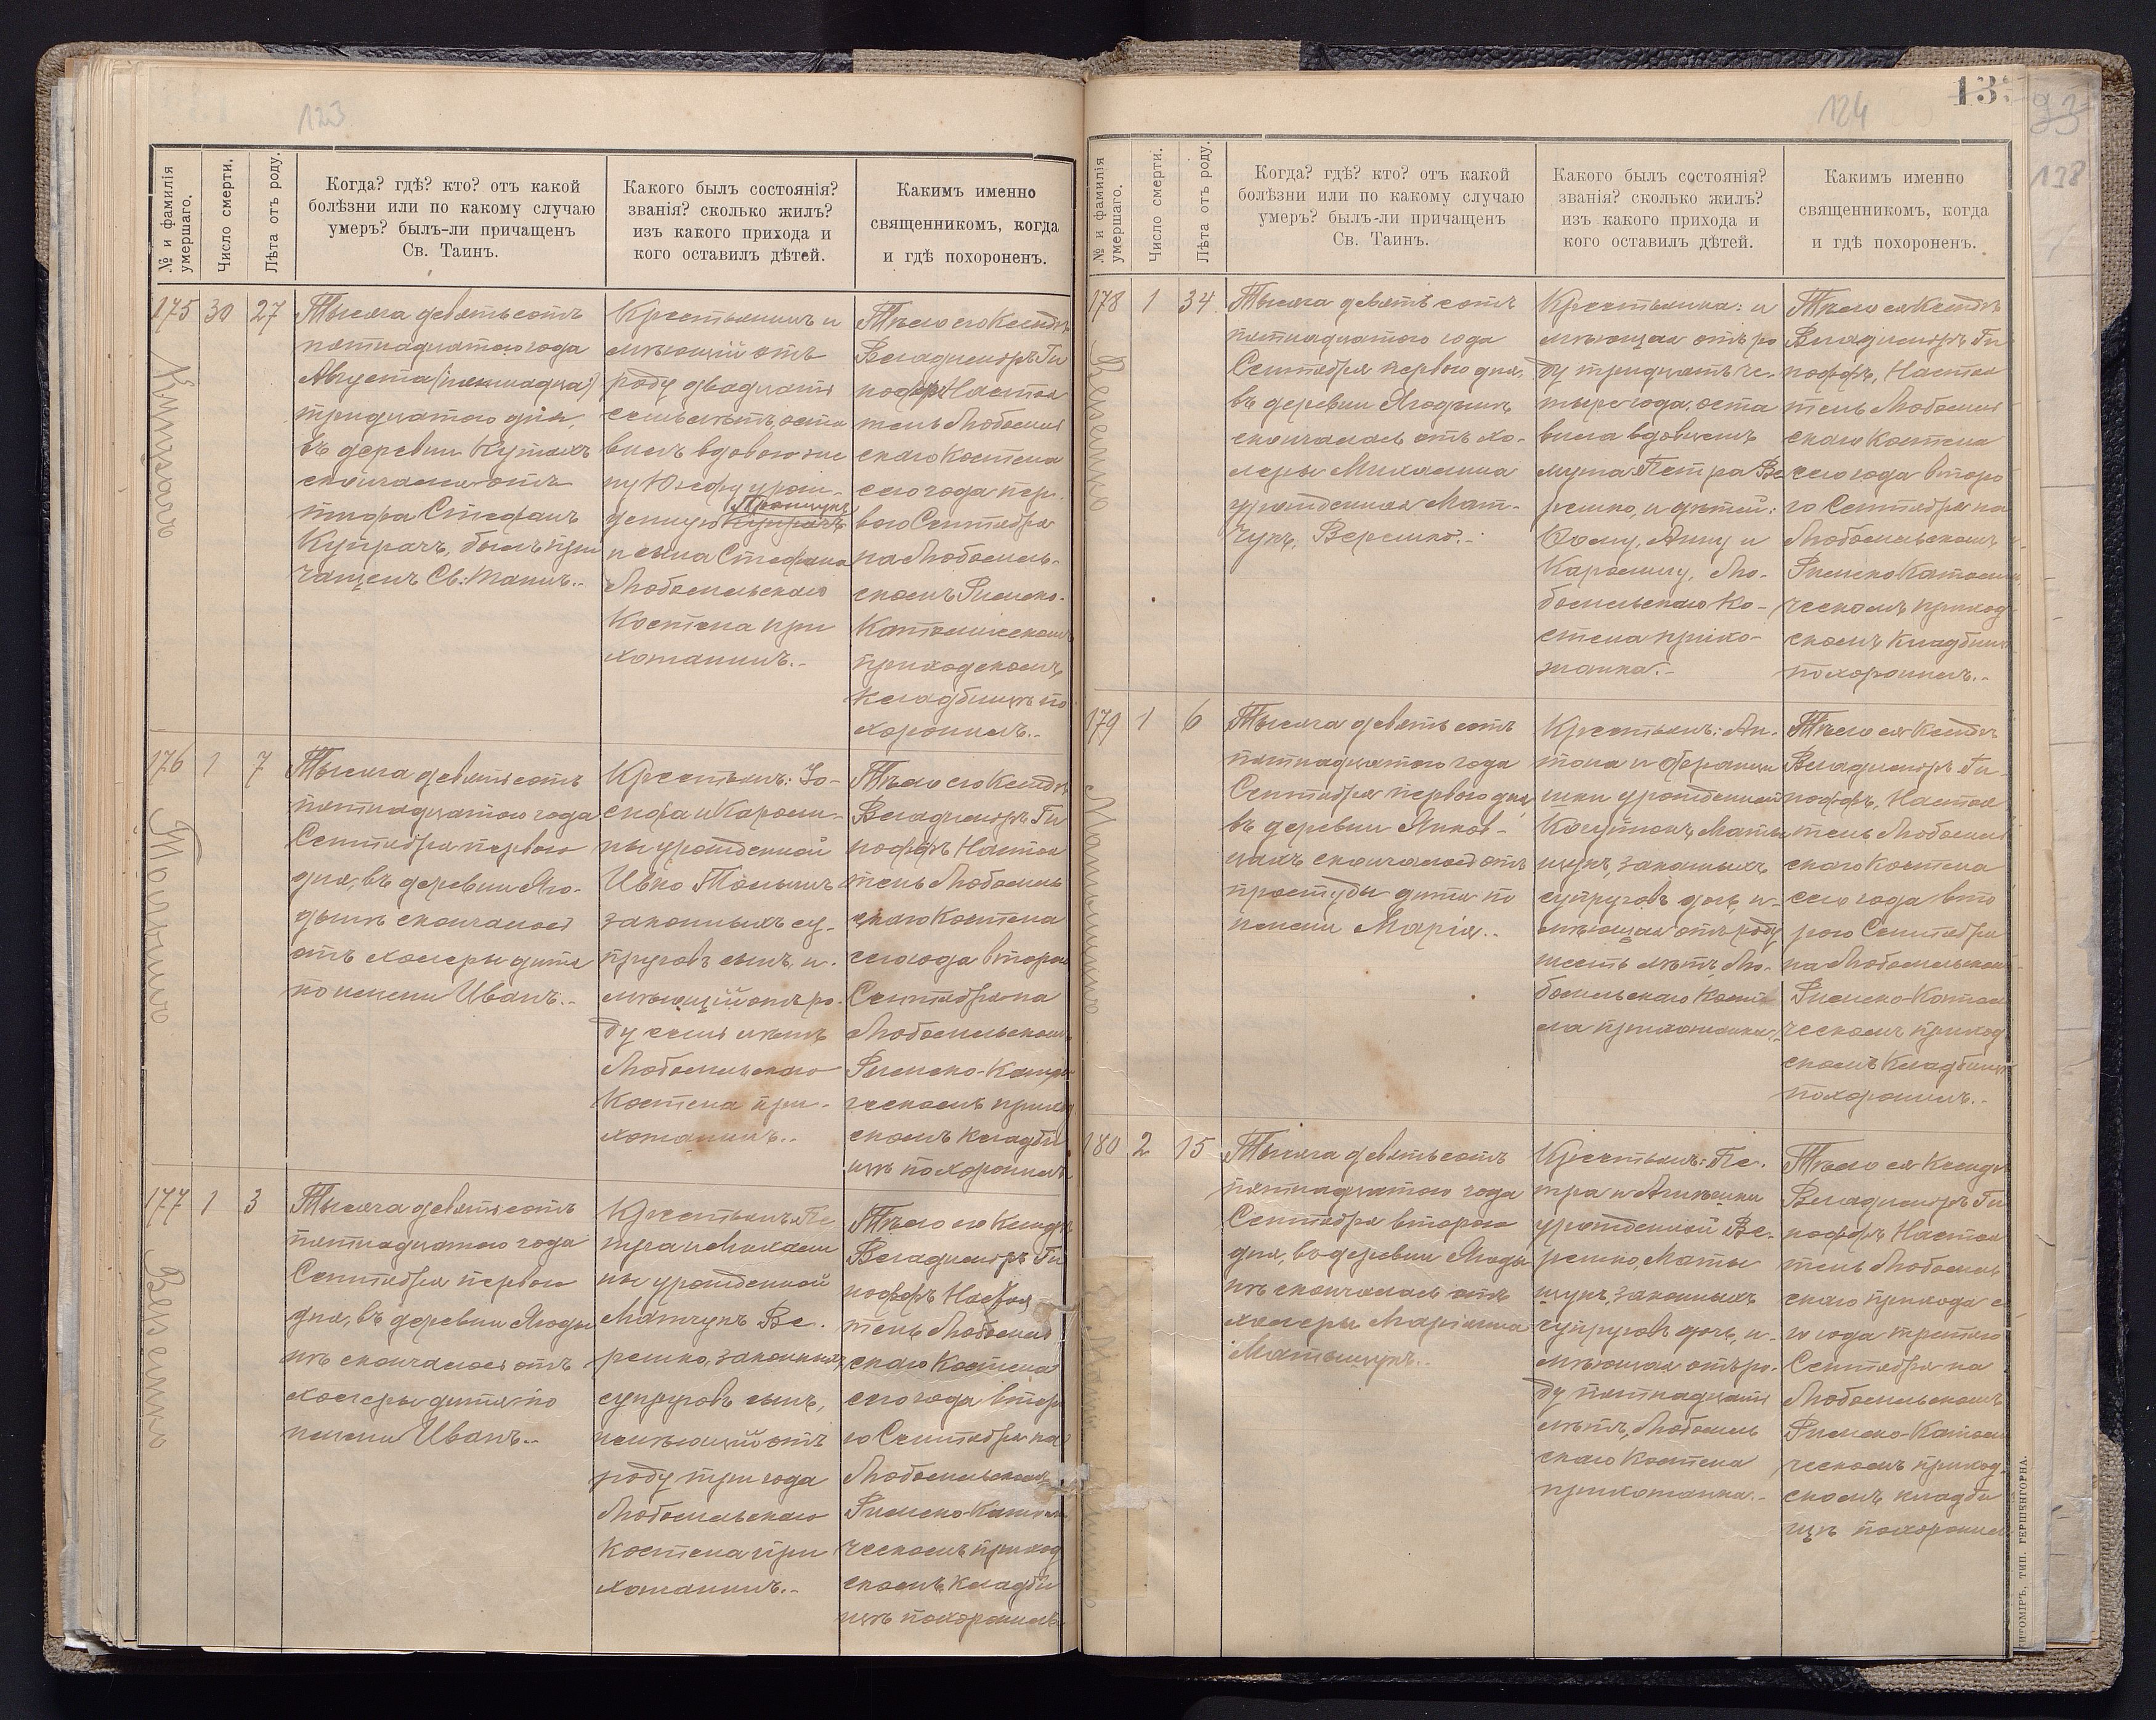 123
№ и фамилія умершаго.
Число смерти.
Лѣта отъ роду.
Когда? гдѣ? кто? отъ какой
болѣзни или по какому случаю
умеръ? былъ-ли причащенъ
Св. Таинъ.
Какого былъ состоянія?
званія? сколько жилъ?
изъ какого прихода и
кого оставилъ дѣтей.
Какимъ именно
священникомъ, когда
и гдѣ похороненъ.
175
30
27
Тысяча девятьсотъ
пятнадцатого года
Августа
тридцатого дня,
въ деревни Кутахъ
скончался отъ
тифа Стефанъ
Купрачъ, былъ при
чащенъ Св: Таинъ.-
Крестьянинъ и
мѣющій отъ
роду двадцать
семь лѣтъ, оста
вилъ вдовою же
ну Юзефу урож-
денную Купрачъ
и сына Стефана
Любомльскаго
Костела при
хожанинъ.-
Тѣло его Ксендзъ
Владиміръ Ги
поффъ Настоя
тель Любомль
скаго Костела
сего года пер
вого Сентября
на Любомль-
скомъ Римско-
Католическомъ
приходскомъ
кладбищѣ по
хоронилъ.-
176
1
7
Тысяча девятьсотъ
пятнадцатого года
Сентября первого
дня, въ деревни Яго-
дынѣ скончалось
отъ холеры дитя
по имени Иванъ.-
Крестьянъ: Іо-
сифа и Кароли-
ны урожденной
Ивко
законныхъ су-
пруговъ сынъ, и-
мѣющій отъ ро-
ду семь лѣтъ
Любомльскаго
Костела при-
хожанинъ.-
Тѣло его Ксендзъ
Владиміръ Ги
поффъ Настоя
тель Любомль
скаго Костела
сего года второго
Сентября на
Любомльскомъ
Римско-Католи
ческомъ приход
скомъ кладби
щѣ похоронилъ
177
1
3
Верешко
Тысяча девятьсотъ
пятнадцатого года
Сентября первого
дня, въ деревни Ягоды
нѣ скончалось отъ
холеры дитя по
имени Иванъ.-
Крестьянъ: Пе
тра и Михали
ны урожденной
Матчукъ Ве-
решко, законныхъ
супруговъ сынъ,
имѣющій отъ
роду три года
Любомльскаго
Костела при
хожанинъ.-
Тѣло его Ксендзъ
Владиміръ Ги
поффъ Настоя
тель Любомль
скаго Костела
сего года второ
го Сентября на
Любомльскомъ
Римско-Католи
ческомъ приход
скомъ кладби
щѣ похоронилъ
124
13
93
138
№ и фамилія умершаго.
Число смерти.
Лѣта отъ роду.
Когда? гдѣ? кто? отъ какой
болѣзни или по какому случаю
умеръ? былъ-ли причащенъ
Св. Таинъ.
Какого былъ состоянія?
званія? сколько жилъ?
изъ какого прихода и
кого оставилъ дѣтей.
Какимъ именно
священникомъ, когда
и гдѣ похороненъ.
178
1
34
Верешко
Тысяча девятьсотъ
пятнадцатого года
Сентября первого дня,
въ деревни Ягодынѣ
скончалась отъ хо-
леры Михалина
урожденная Мат-
чукъ, Верешко.-
Крестьянка: и
мѣющая отъ ро
ду тридцать че-
тыре года, оста
вила вдовцемъ
мужа Петра Ве
решко, и дѣтей:
Анну и
Каролину, Лю-
бомльскаго Ко-
стела прихо-
жанка.-
Тѣло ея Ксендзъ
Владиміръ Ги
поффъ, Настоя
тель Любомль
скаго Костела
сего года второ
го Сентября на
Любомльскомъ
Римско Католи
ческомъ приход
скомъ кладбищѣ
похоронилъ.-
179
1
6
Тысяча девятьсотъ
пятнадцатого года
Сентября первого дня
въ деревни Янков-
цахъ скончалось отъ
простуды дитя по
имени Марія.-
Крестьянъ: Ан-
тона и Франци
шки урожденной
законныхъ
супруговъ дочь, и-
мѣющая отъ роду
шесть лѣтъ, Лю-
бомльскаго Косте
ла прихожанка.-
Тѣло ея Ксендзъ
Владиміръ Ги-
поффъ, Настоя
тель Любомль
скаго Костела
сего года вто
рого Сентября
на Любомльскомъ
Римско-Католи
ческомъ приход
скомъ кладбищѣ
похоронилъ.-
180
2
15
Тысяча девятьсотъ
пятнадцатого года
Сентября второго
дня, въ деревни Ягоды
нѣ скончалась отъ
холеры Маріанна
Матыщукъ.-
Крестьянъ: Пе-
тра и Агнешки
урожденной Ве-
решко, Маты
щукъ, законныхъ
супруговъ дочь, и-
мѣющая отъ ро-
ду пятнадцать
лѣтъ, Любомль
скаго Костела
прихожанка.-
Тѣло ея Ксендзъ
Владиміръ Ги
поффъ Настоя
тель Любомль
скаго прихода се
го года третьяго
Сентября на
Любомльскомъ
Римско-Католи
ческомъ приход-
скомъ кладби
щѣ похоронилъ
ЖИТОМІРЪ, ТИП. ГЕРШЕНГОРНА.